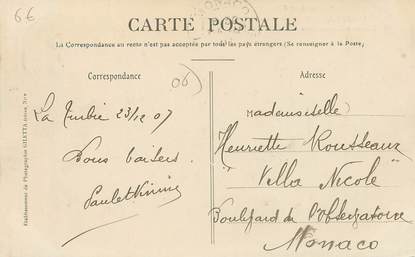 66
MONACO
CARTE POSTALE
La Correspondance au recto n'est pas acceptée par tous les pays étrangers (Se renseigner à la Poste)
Correspondance
06)
Adresse
La Turbie 23/12 07
Bons baisers
Mademoiselle
Henriette Rousseaux
"Villa Nicole"
Boulevard de l'Observatoire
Monaco
Etablissement de Photographie GILETTA frères, Nice